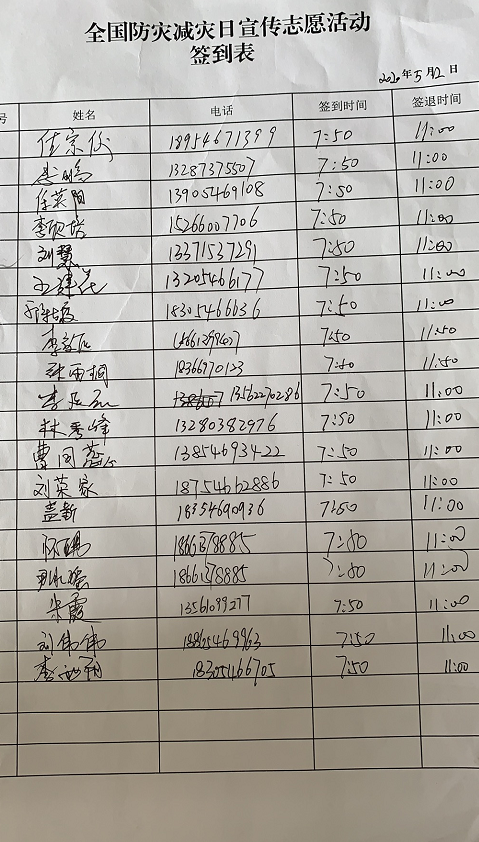 全国防灾减灾日宣传志愿活动
签到表
2020年5月12日
号 姓名 电话 签到时间 签退时间
18954671399 7:50 11:00
13287375507 7:50 11:00
徐英阳 13905469108 7:50 11:00
15266007706 7:50 11:00
刘慧 13371537291 7:50 11:00
13205466177 7:50 11:00
18305466636 7:50 11:00
7:50 11:50
18366970123 7:50 11:50
李 13562270286 7:50 11:00
林秀峰 13280382976 7:50 11:00
曹同 13854693422 7:50 11:00
刘英家 18754662886 7:50 11:00
盖新 18354690936 7:50 11:00
18661378885 7:50 11:00
18661378885 7:50 11:00
朱霞 13561099277 7:50 11:00
刘伟伟 18805469963 7:50 11:00
李 18305466705 7:50 11:00